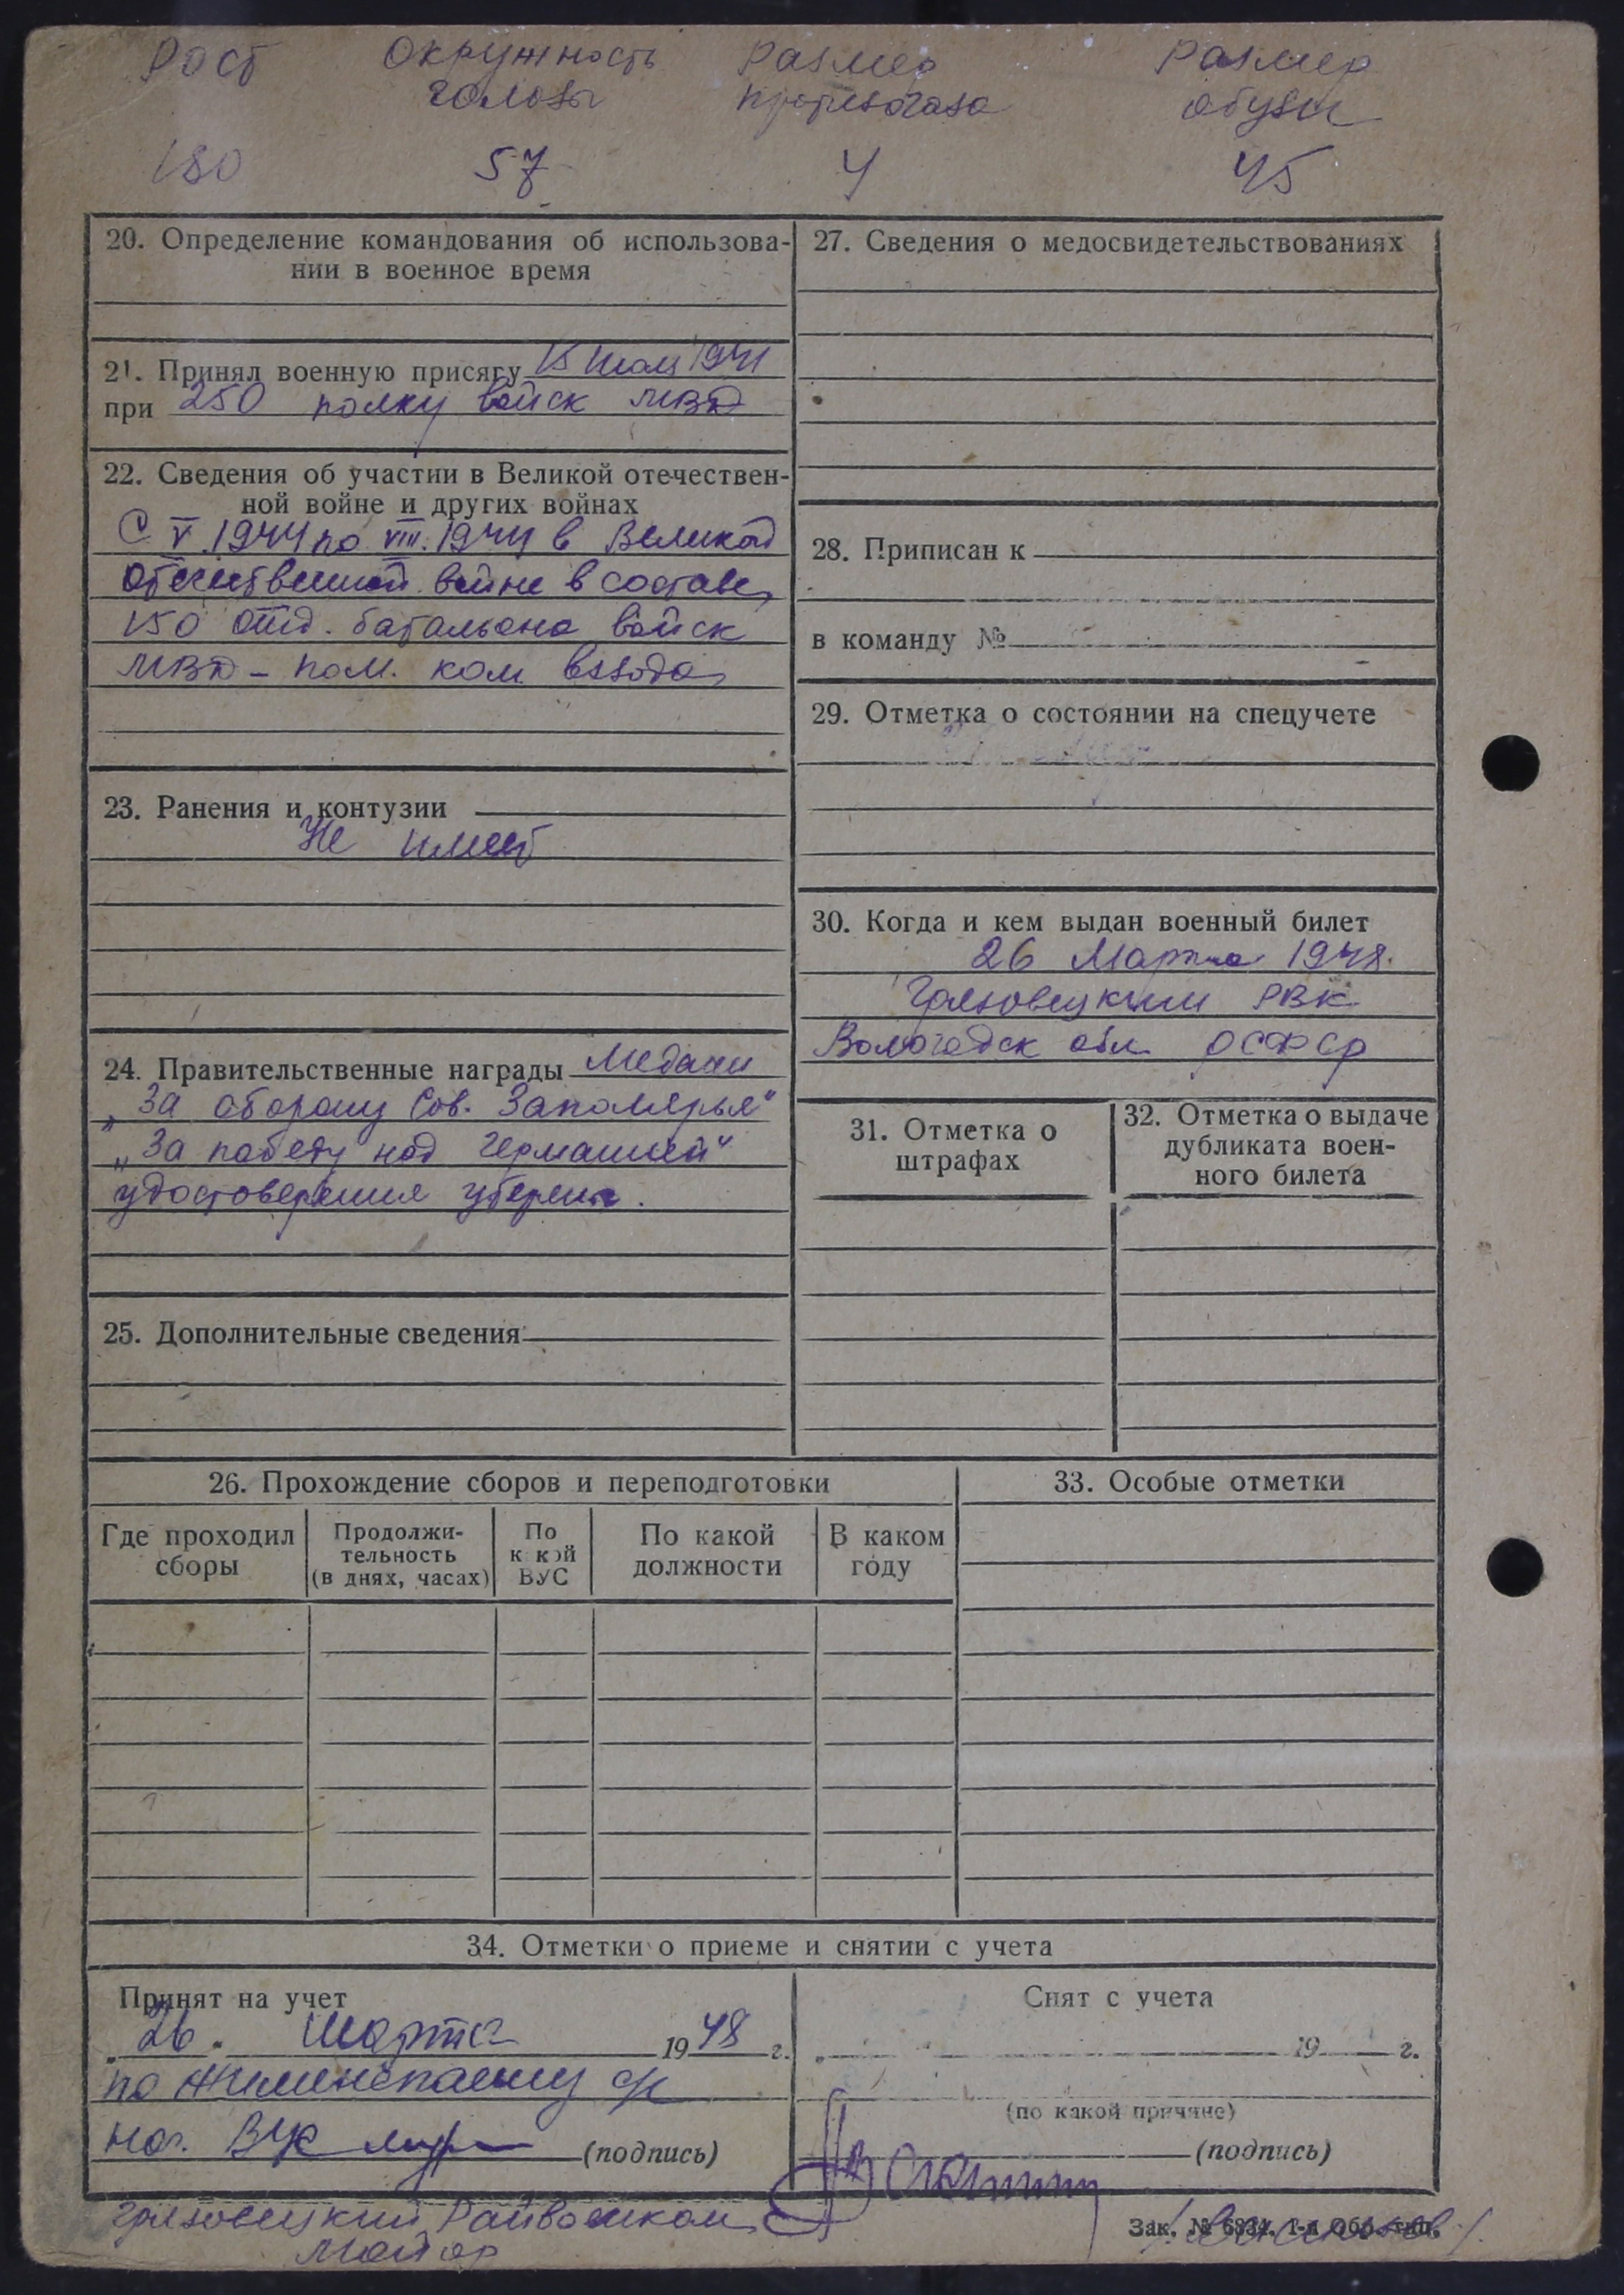 Рост Окружность Размер Размер
головы противогаза обуви
180 57 4 45
20. Определение командования об использова-
нии в военное время
21. Принял военную присягу 15 1941
при 250 полку войск МВД
22. Сведения об участии в Великой отечествен-
ной войне и других войнах
С V.1944 по VIII.1944 в Великой
отечественной войне в составе
150 отд. батальона войск
МВД – пом. ком взвода
23. Ранения и контузии
Не имеет
24. Правительственные награды Медали
„За оборону Сов. Заполярья"
„За победу над Германией"
удостоверения утеряны.
25. Дополнительные сведения
27. Сведения о медосвидетельствованиях
28. Приписан к
в команду №
29. Отметка о состоянии на спецучете
30. Когда и кем выдан военный билет
26 Марта 1948.
Грязовецким РВК
Вологодск обл. РСФСР
31. Отметка о
штрафах
32. Отметка о выдаче
дубликата воен-
ного билета
26. Прохождение сборов и переподготовки
Где проходил
сборы
Продолжи-
тельность
(в днях, часах)
По
какой
ВУС
По какой
должности
В каком
году
33. Особые отметки
34. Отметки о приеме и снятии с учета
Принят на учет
„26" Марта 1948 г.
по с/с
нач. (подпись)
Снят с учета
„ " 19 г.
(по какой причине)
(подпись)
Грязовецкий Райвоенком
Майор
Зак. № 6834. 1-я Обр. тип.